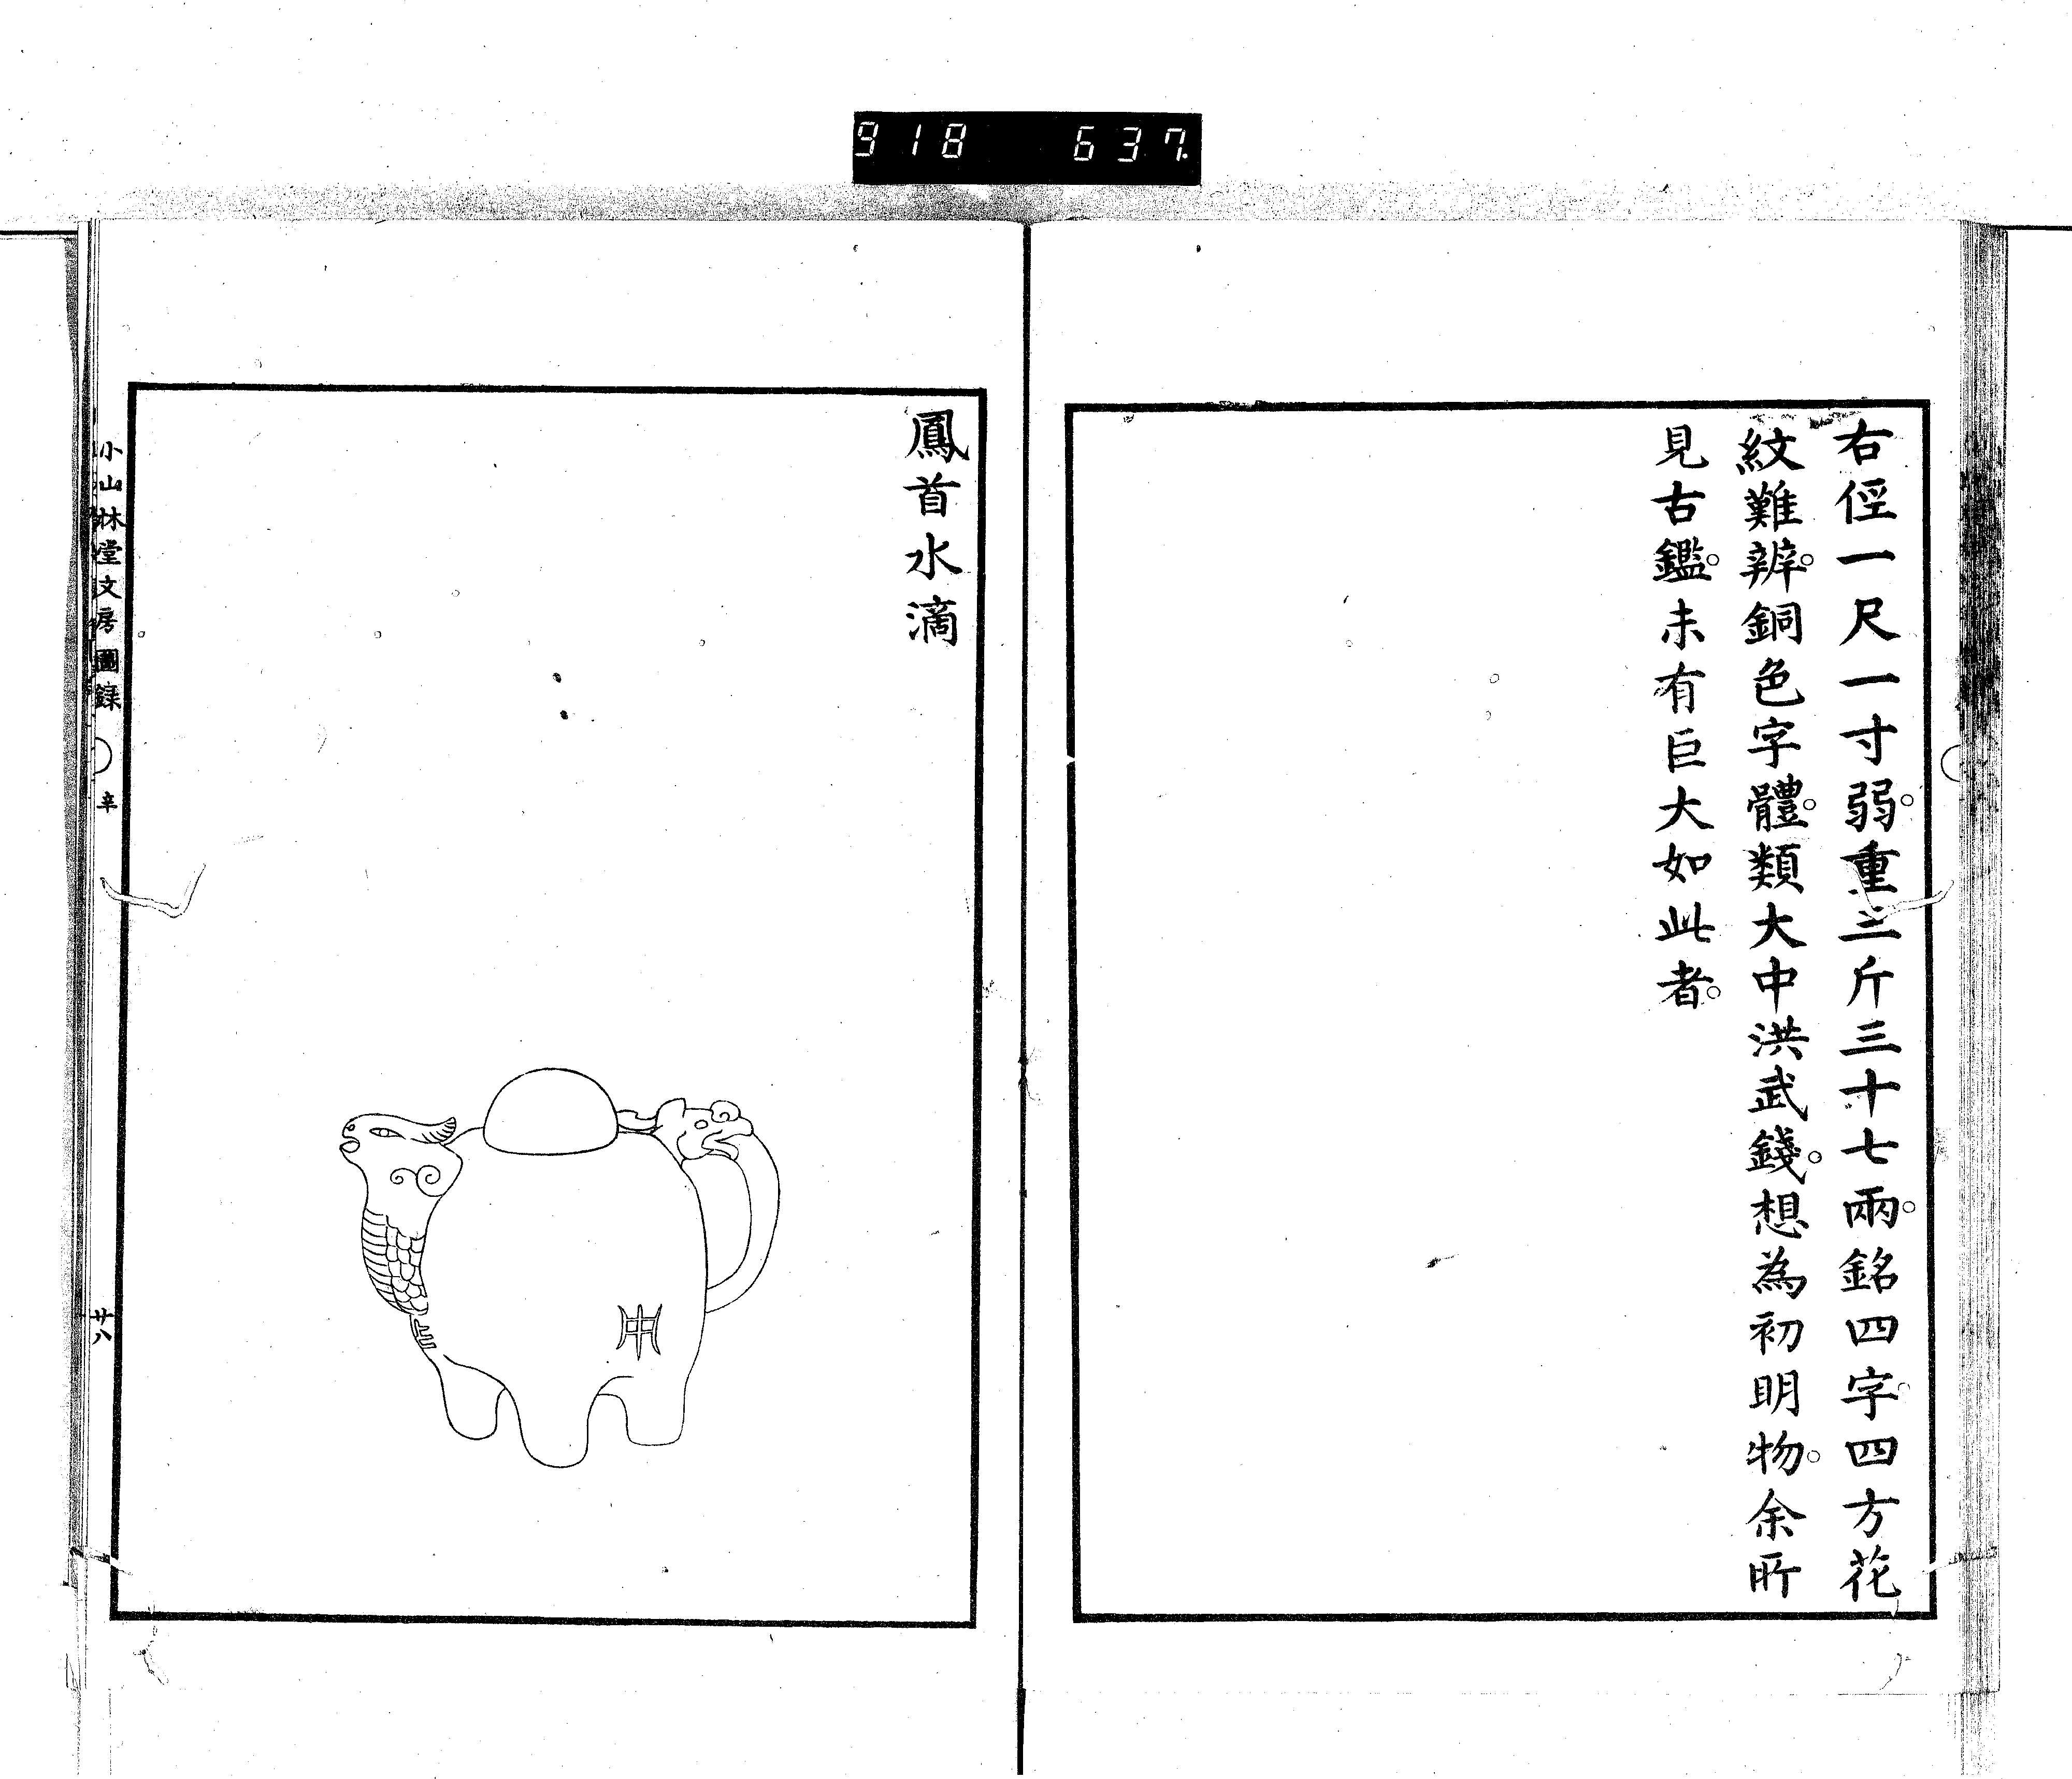 918 637.
右俓一尺一寸弱。重三斤三十七兩。銘四字。四方花
紋難辨。銅色字體。類大中洪武錢。想為初明物。余所
見古鑑。未有巨大如此者。
鳳首水滴
小山林堂文房圖錄 辛 廿八